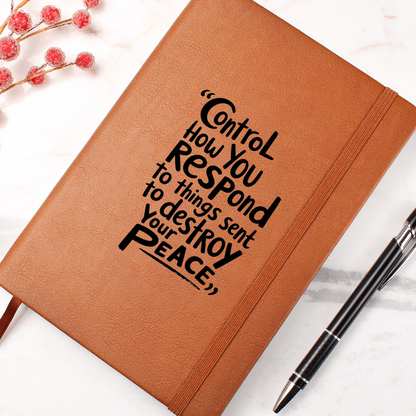 “Control
How You
Respond
to things sent
to destroy
Your
Peace„